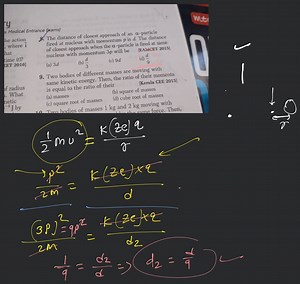 TY
Medical Entrance Exams)
The distance of closest approach of an α-particle
fired at nucleus with momentum p is d. The distance
of closest approach when the α-particle is fired at same
nucleus with momentum 3p will be
(a) 3d (b) d/3 (c) 9d (d) d/9
9. Two bodies of different masses are moving with
same kinetic energy. Then, the ratio of their momenta
is equal to the ratio of their (Kerala CEE
(a) masses (b) square of masses
(c) square root of masses (d) cube root of masses
Two bodies of masses 1 kg and 2 kg moving with
same Force. Then,
1/2 mv² = K(Ze)q / r
p²/2m = K(Ze)×q / d
(3p)²/2m = 9p² = K(Ze)×q / d₂
1/9 = d₂/d => d₂ = d/9
r